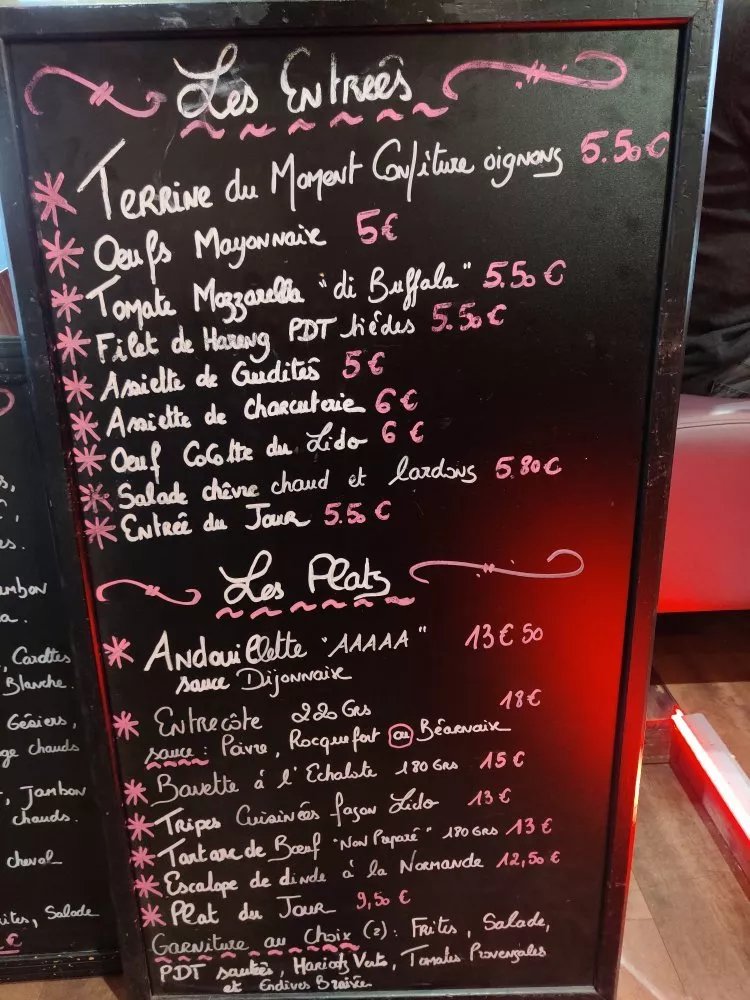 Les Entreés
Terrine du Moment Confiture oignons 5.50€
Oeufs Mayonnaise 5€
Tomate Mozzarella "di Buffala" 5.50€
Filet de Hareng PDT tiédes 5.50€
Assiette de Crudités 5€
Assiette de Charcuterie 6€
Oeuf Cocotte du Lido 6€
Salade chèvre chaud et lardons 5.80€
Entreé du Jour 5.50€
Les Plats
Andouillette "AAAAA" 13€50
sauce Dijonnaise
Entrecôte 220 Grs 18€
sauce : Poivre, Rocquefort ou Béarnaise
Bavette à l'Echalote 180 Grs 15€
Tripes Cuisinées façon Lido 13€
Tartare de Bœuf "Non Preparé" 180 Grs 13€
Escalope de dinde à la Normande 12,50€
Plat du Jour 9,50€
Garniture au Choix (2) : Frites, Salade,
PDT sautées, Haricots Verts, Tomates Provençales
et Endives Braisée
s,
,
es.
ambon
a.
, Carottes
Blanche.
Gésiers,
ge chauds
, Jambon
chauds.
cheval
ites, Salade
€